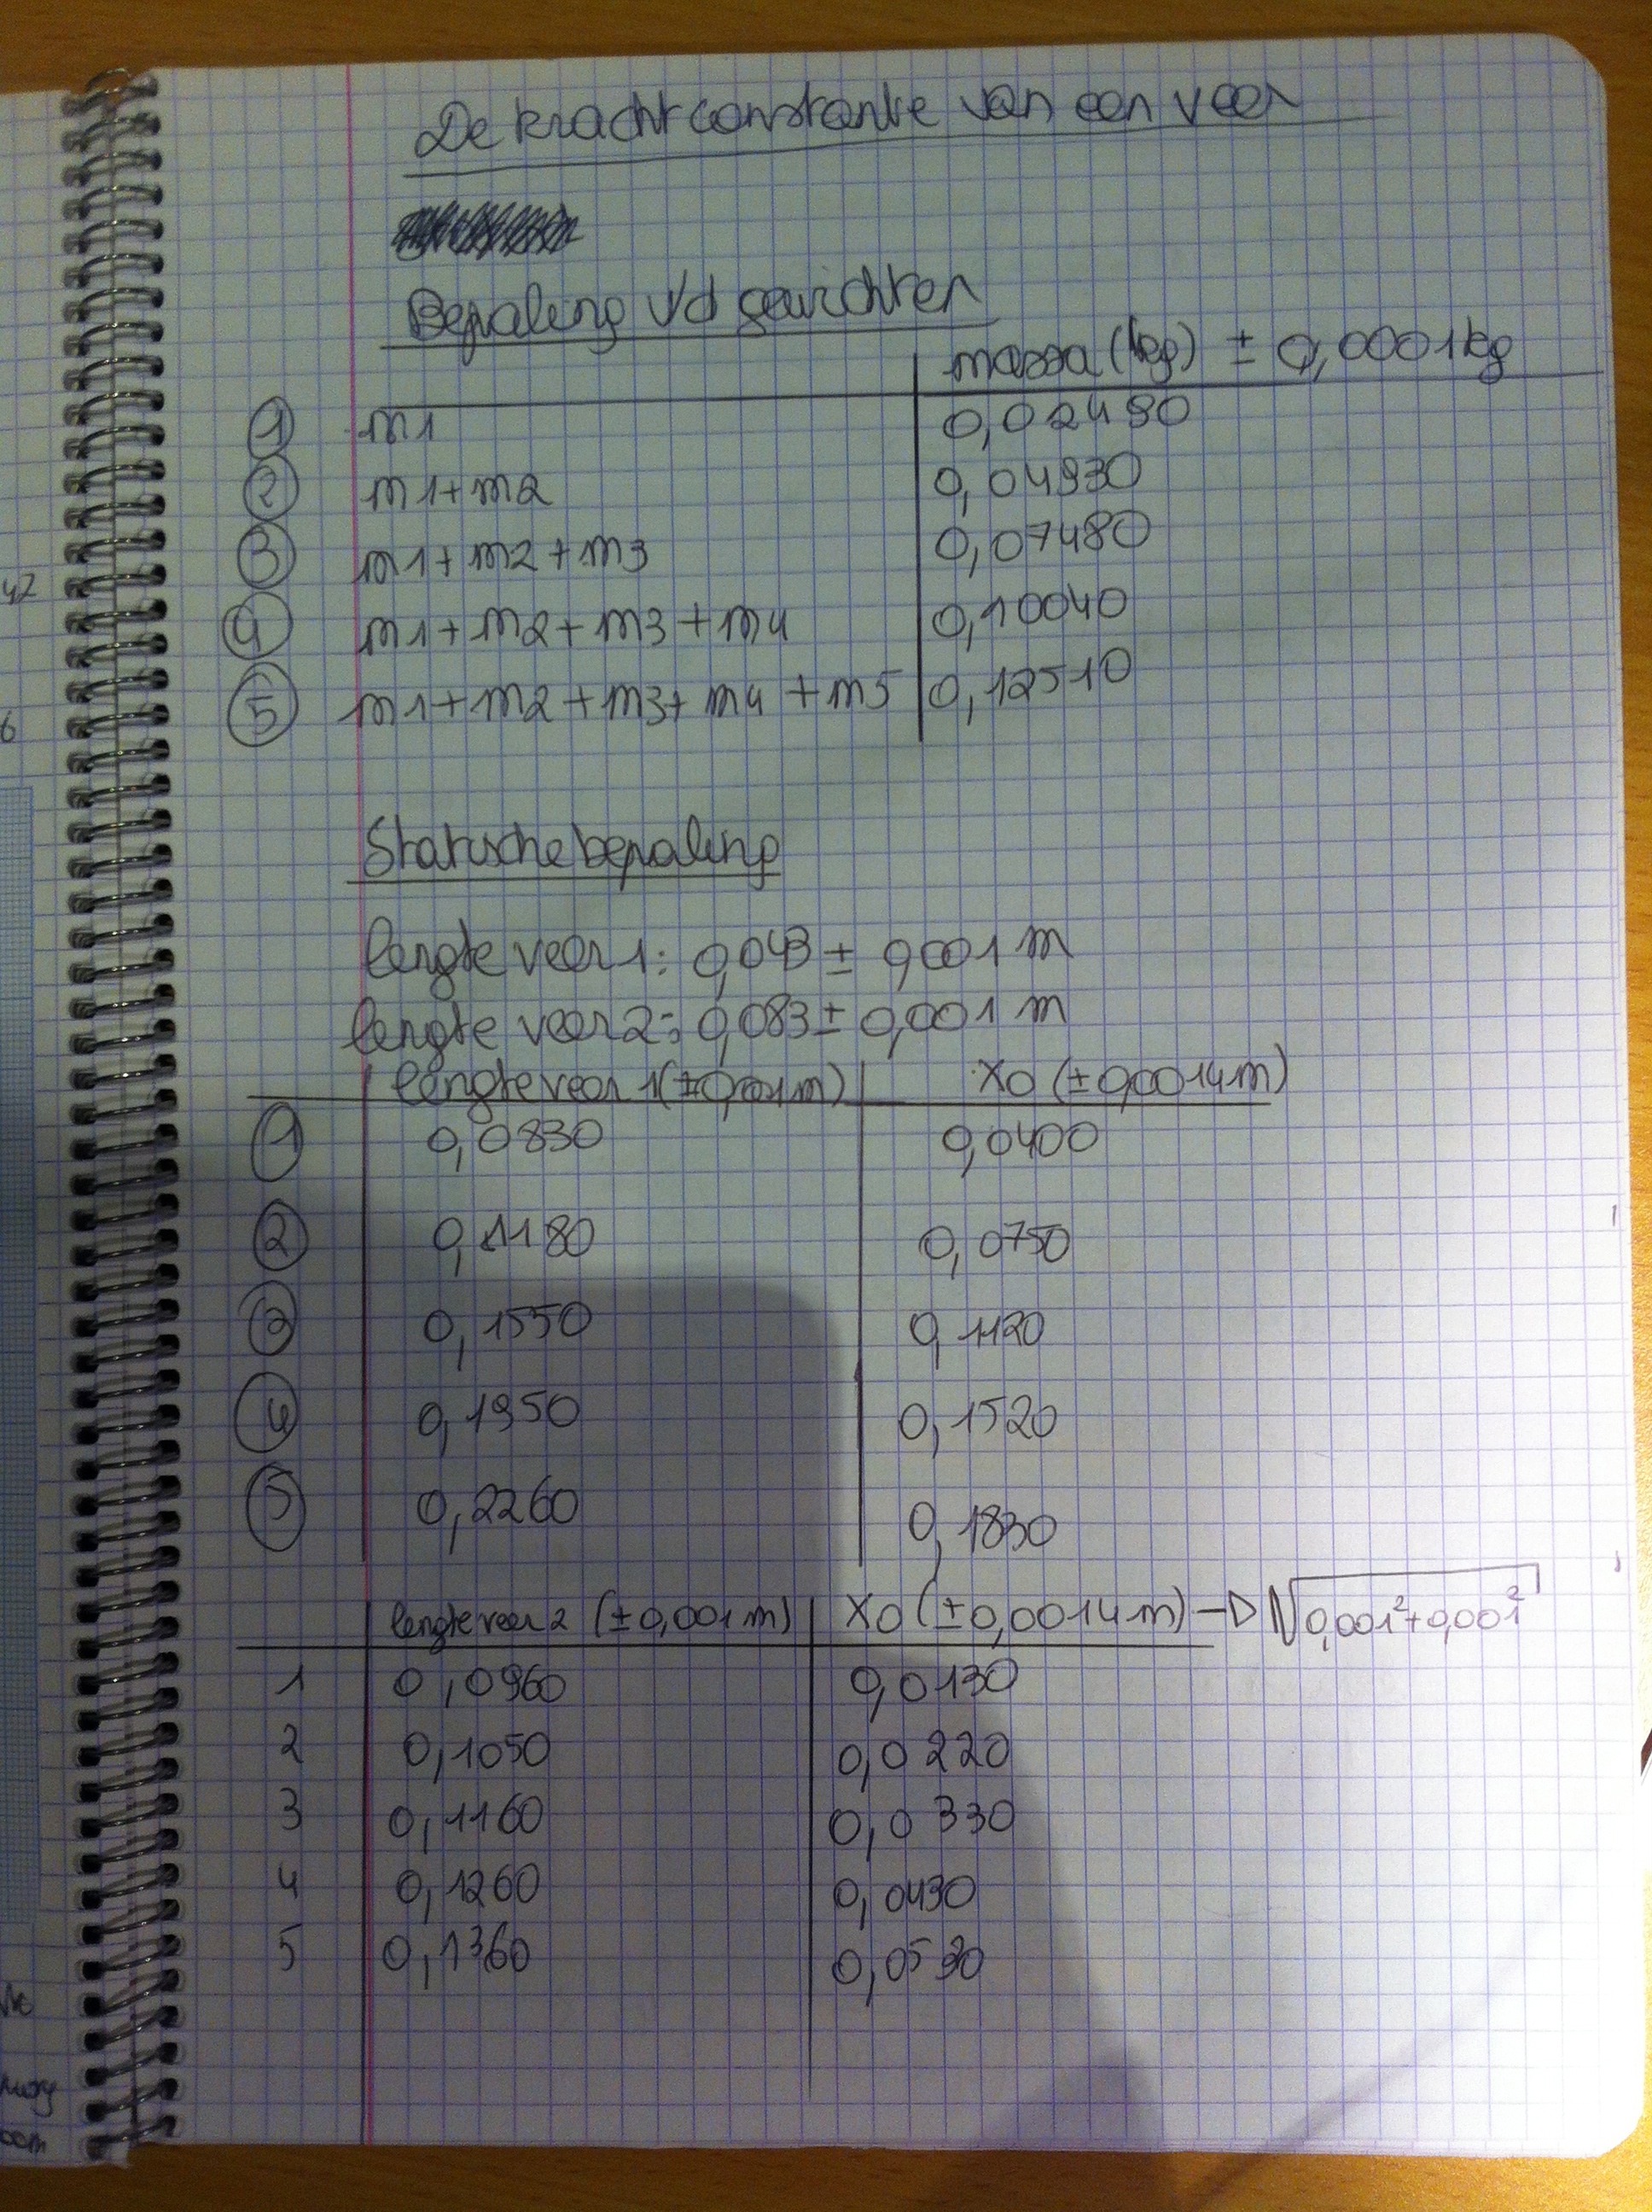 De krachtconstante van een veer
Bepaling v/d gewichten
massa (kg) ± 0,0001 kg
1 m1 0,02480
2 m1+m2 0,04930
3 m1+m2+m3 0,07480
4 m1+m2+m3+m4 0,10040
5 m1+m2+m3+m4+m5 0,12510
Statische bepaling
lengte veer 1: 0,043 ± 0,001 m
lengte veer 2: 0,083 ± 0,001 m
lengte veer 1 (±0,001m) X0 (±0,0014m)
1 0,0830 0,0400
2 0,1180 0,0750
3 0,1550 0,1120
4 0,1950 0,1520
5 0,2260 0,1830
lengte veer 2 (±0,001m) X0 (±0,0014m) → √0,001²+0,001²
1 0,0960 0,0130
2 0,1050 0,0220
3 0,1160 0,0330
4 0,1260 0,0430
5 0,1360 0,0530
42
6